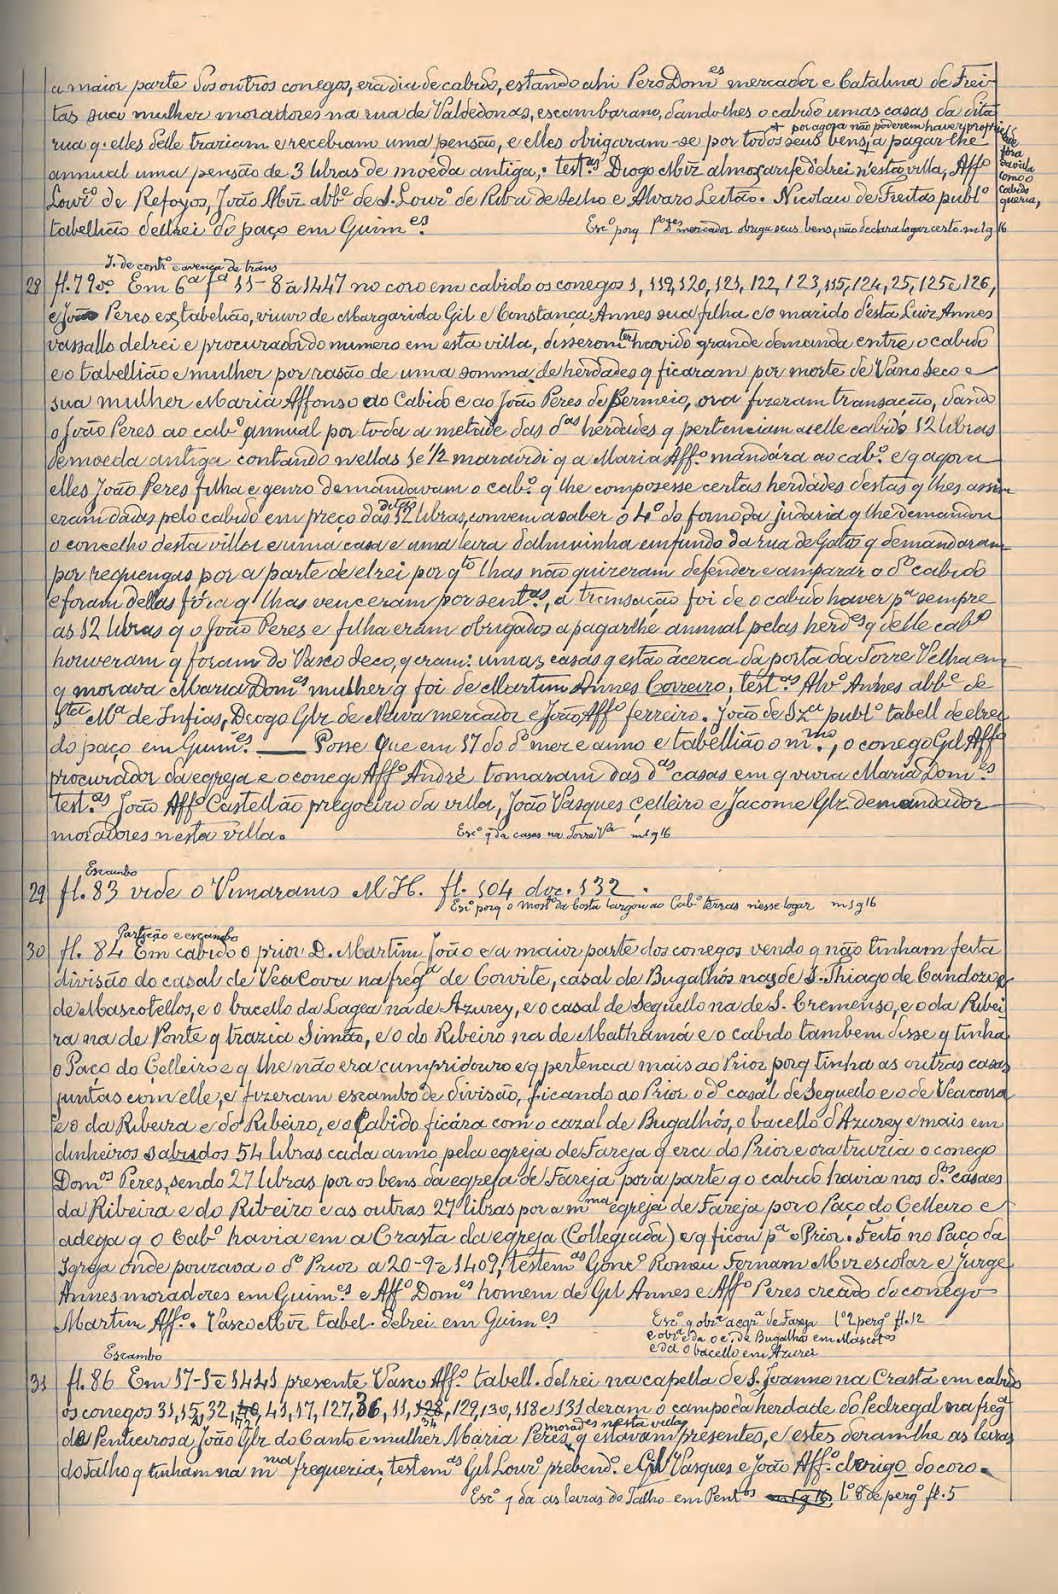 a maior parte dos outros conegos, era dia de cabido, estando ahi Pero Dom.es mercador e Catalina de Frei-
tas sua mulher moradores na rua de Valdedonas, escambaram, dando-lhes o cabido umas casas da dita
+ por agora não poderem haver propried.
rua q. elles delle traziam e recebiam uma pensão, e elles obrigaram-se por todos seus bens, a pagar-lhe
annual uma pensão de 3 libras de moeda antiga. test.as Diogo Miz almoxarife d'elrei n'esta villa, Aff.o
Lour.o de Refoyos, João Miz abb.e de S. Lour.o de Riba de Selho e Alvaro Leitão. Nicolau de Freitas publ.o
fóra
como o
Cabido
queria,
tabellião delrei do paço em Guim.es
Esc.o porq P.o D.es mercador obriga seus bens, não declara logar certo. m 1 g 16
I. de contr.o e avença de trans
28 fl. 79 v.o Em 6.a f.a 11-8-a 1447 no coro em cabido os conegos 1, 119, 120, 121, 122, 123, 115, 124, 25, 125 e 126,
e João Peres ex tabelião, viuvo de Margarida Gil e Constança Annes sua filha c/o marido d'esta Luiz Annes
vassallo delrei e procurador do numero em esta villa, disseram ter havido grande demanda entre o cabido
e o tabellião e mulher por rasão de uma somma de herdades q ficaram por morte de Vasco Seco e
sua mulher Maria Affonso ao Cabido e ao João Peres de Bermeio, ora fizeram transacção, dando
o João Peres ao cab.o annual por toda a metade das d.as herdades q pertenciam a elle cabido 12 libras
de moeda antiga contando n'ellas 1 e 1/2 maravidi q a Maria Aff.o mandára ao cab.o e q agora
elles João Peres filha e genro demandavam o cab.o q lhe compozesse certas herdades destas q lhes assim
eram dadas pelo cabido em preço das ditas 12 libras, convem a saber o 4.o do forno da judaria q lhe demandou
o concelho desta villa e uma casa e uma leira d'almuinha em fundo da rua de Gatos q demandaram
por requengas por a parte de elrei por q.to lhas não quizeram defender e amparar o d.o cabido
e foram dellas fóra q lhas venceram por sent.as, a transação foi de o cabido haver p.a sempre
as 12 libras q o João Peres e filha eram obrigados a pagar-lhe annual pelas herd.es q delle cab.o
houveram q foram do Vasco Seco, q eram: umas casas q estão ácerca da porta da Torre Velha em
q morava Maria Dom.es mulher q foi de Martim Annes Correiro; test.as Alv.o Annes abb.e de
S.ta M.a de Infias, Diogo Glz de Neiva mercador e João Aff.o ferreiro. João de Sz.a publ.o tabell de elrei
do paço em Guim.es. ——— Posse que em 17 do d.o mez e anno e tabellião o m.mo, o conego Gil Aff.o
procurador da egreja e o conego Aff.o André tomaram das d.as casas em q vivia Maria Dom.es
test.as João Aff.o Castellão pregoeiro da villa, João Vasques Celleiro e Jacome Glz demandador
moradores nesta villa.
Esc.o q da casas na Torre V.a m 1 g 16
Escambo
29 fl. 83 vide o Vimaranis M. H. fl. 104 doc. 132.
Esc.o porq o Most.o da Costa largou ao Cab.o terras nesse logar m 1 g 16
Partição e escambo
30 fl. 84 Em cabido o prior D. Martim João e a maior parte dos conegos vendo q não tinham feita
divisão do casal de Vea Cova na freg.a de Corvite, casal de Bugalhós nas de S. Thiago de Candoso e
de Mascotellos, e o bacello da Lagea na de Azurey, e o casal de Segudlo na de S. Cremenso, e o da Ribei
ra na de Ponte q trazia Simão, e o do Ribeiro na de Mathamá e o cabido tambem disse q tinha
o Paço do Celleiro e q lhe não era cumpridouro e q pertencia mais ao Prior porq tinha as outras casas
juntas com elle, e fizeram escambo de divisão, ficando ao Prior o d.o casal de Seguedo e o de Veacova
e o da Ribeira e do Ribeiro, e o Cabido ficára com o cazal de Bugalhós, o bacello d'Azurey e mais em
dinheiros sabudos 54 libras cada anno pela egreja de Fareja q era do Prior e ora trazia o conego
Dom.os Peres, sendo 27 libras por os bens da egreja de Fareja por a parte q o cabido havia nos d.os casaes
da Ribeira e do Ribeiro e as outras 27 libras por a m.ma egreja de Fareja por o Paço do Celleiro e
adega q o Cab.o havia em a Crasta da egreja (Collegiada) e q ficou p.a o Prior. Feito no Paço da
Igreja onde pouzava o d.o Prior a 20-9-e 1409, testem.as Gonç.o Romeu Fernam Miz escolar e Jurge
Annes moradores em Guim.es e Aff.o Dom.es homem de Gil Annes e Aff.o Peres creado do conego
Martim Aff.o. Vasco Miz tabel. delrei em Guim.es
Esc.o q obr.a a egr.a de Fareja l.o 2 perg.o fl. 12
e obr.a e da o c. de Bugalhós em Mascot.os
e da o bacello em Azurei
Escambo
31 fl. 86 Em 17-1-e 1441 presente Vasco Aff.o tabell. delrei na capella de S. Joanne na Crasta em cabido
os conegos 31, 15, 32, 41, 17, 127, 36, 11, 129, 130, 118 e 131 deram o campo da herdade do Pedregal na freg.a
morad.es nesta villa
de Pentieiros a João Glz do Canto e mulher Maria Peres, q estavam presentes, e estes deram-lhe as leiras
do Talho q tinham na m.ma freguezia, testem.as Gil Lour.o prebend.o e Gil Vasques e João Aff.o clerigo do coro.
Esc.o q da as leiras do Talho em Pent.os m 1 g 16, l.o 8 de perg.o fl. 5